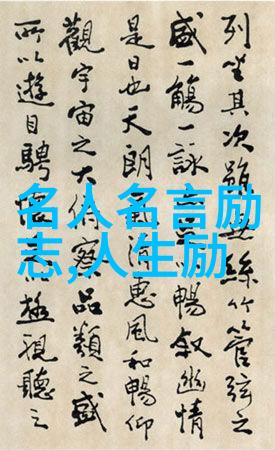 列坐其次雖無絲竹管弦之
盛一觴一詠暢叙幽情
是日也天朗氣清惠風和暢仰
觀宇宙之大俯察品類之盛
所以遊目騁懷極視聽之
名人名言励
志,人生励